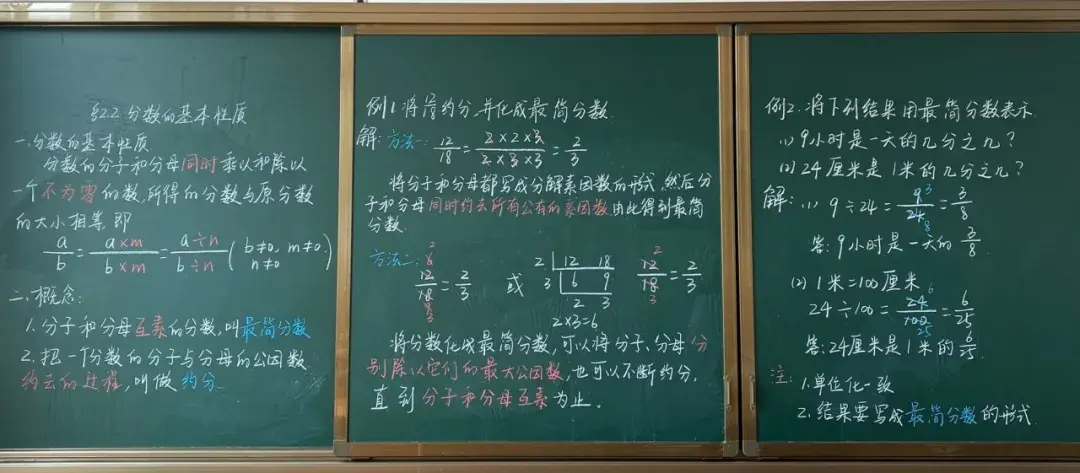 §2.2 分数的基本性质
一.分数的基本性质
分数的分子和分母同时乘以和除以
一个不为零的数,所得的分数与原分数
的大小相等.即
a/b = a×m/b×m = a÷n/b÷n ( b≠0, m≠0, n≠0 )
二.概念:
1.分子和分母互素的分数,叫最简分数
2.把一个分数的分子与分母的公因数
约去的过程,叫做 约分.
例1.将12/18约分,并化成最简分数.
解:方法一: 12/18 = 2×2×3/2×3×3 = 2/3
将分子和分母都写成分解素因数的形式,然后分
子和分母同时约去所有公有的素因数,由此得到最简
分数.
方法二: 12/18 = 2/3 或 2 12 18 12/18 = 2/3
6 9
3 6 9
2 3
2 3
2×3=6
将分数化成最简分数,可以将分子、分母分
别除以它们的最大公因数,也可以不断约分,
直到分子和分母互素为止.
例2.将下列结果用最简分数表示.
(1) 9小时是一天的几分之几?
(2) 24厘米是1米的几分之几?
解:(1) 9÷24 = 9/24 = 3/8
3
8
答:9小时是一天的3/8.
(2) 1米=100厘米
24÷100 = 24/100 = 6/25
6
25
答:24厘米是1米的6/25.
注: 1.单位化一致
2.结果要写成最简分数的形式.